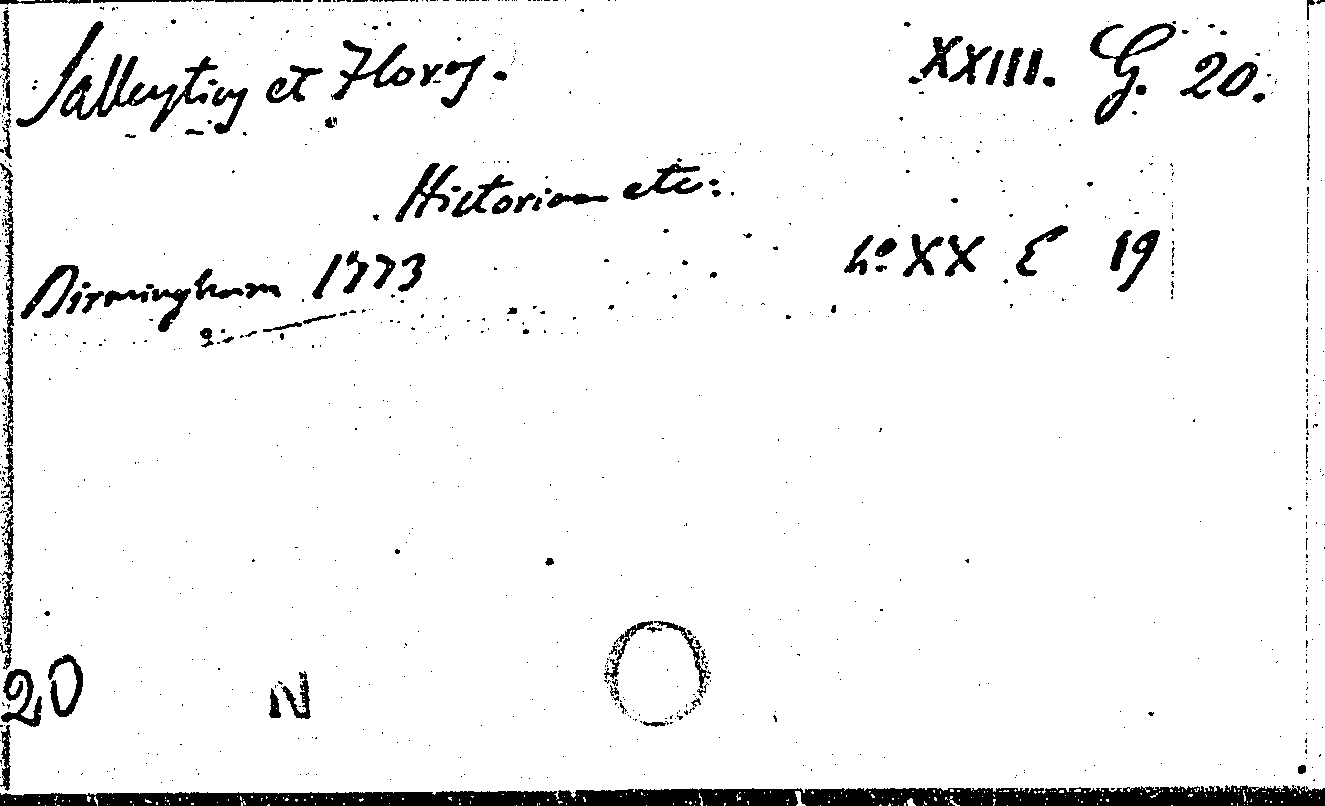 Sallustius et Florus. XXIII. G. 20.
Historiae etc:
Birmingham 1773 4o XX E 19
20 N